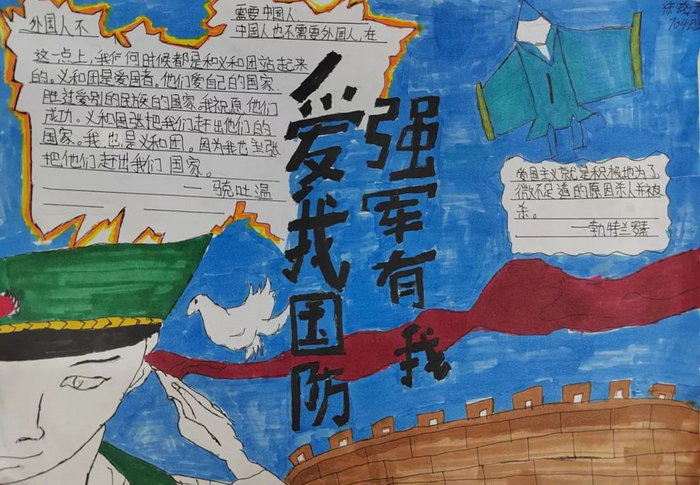 外国人不 需要中国人，
中国人也不需要外国人，在
这一点上，我任何时候都是和义和团站起来
的。义和团是爱国者。他们爱自己的国家
胜过爱别的民族的国家。我祝愿他们
成功。义和团张把我们赶出他们的
国家。我也是义和团。因为我也主张
把他们赶出我们国家。
——骁吐温
爱我国防
强军有我
爱国主义就是积极地为了
微不足道的原因杀人并被
杀。
——勃特兰罗素